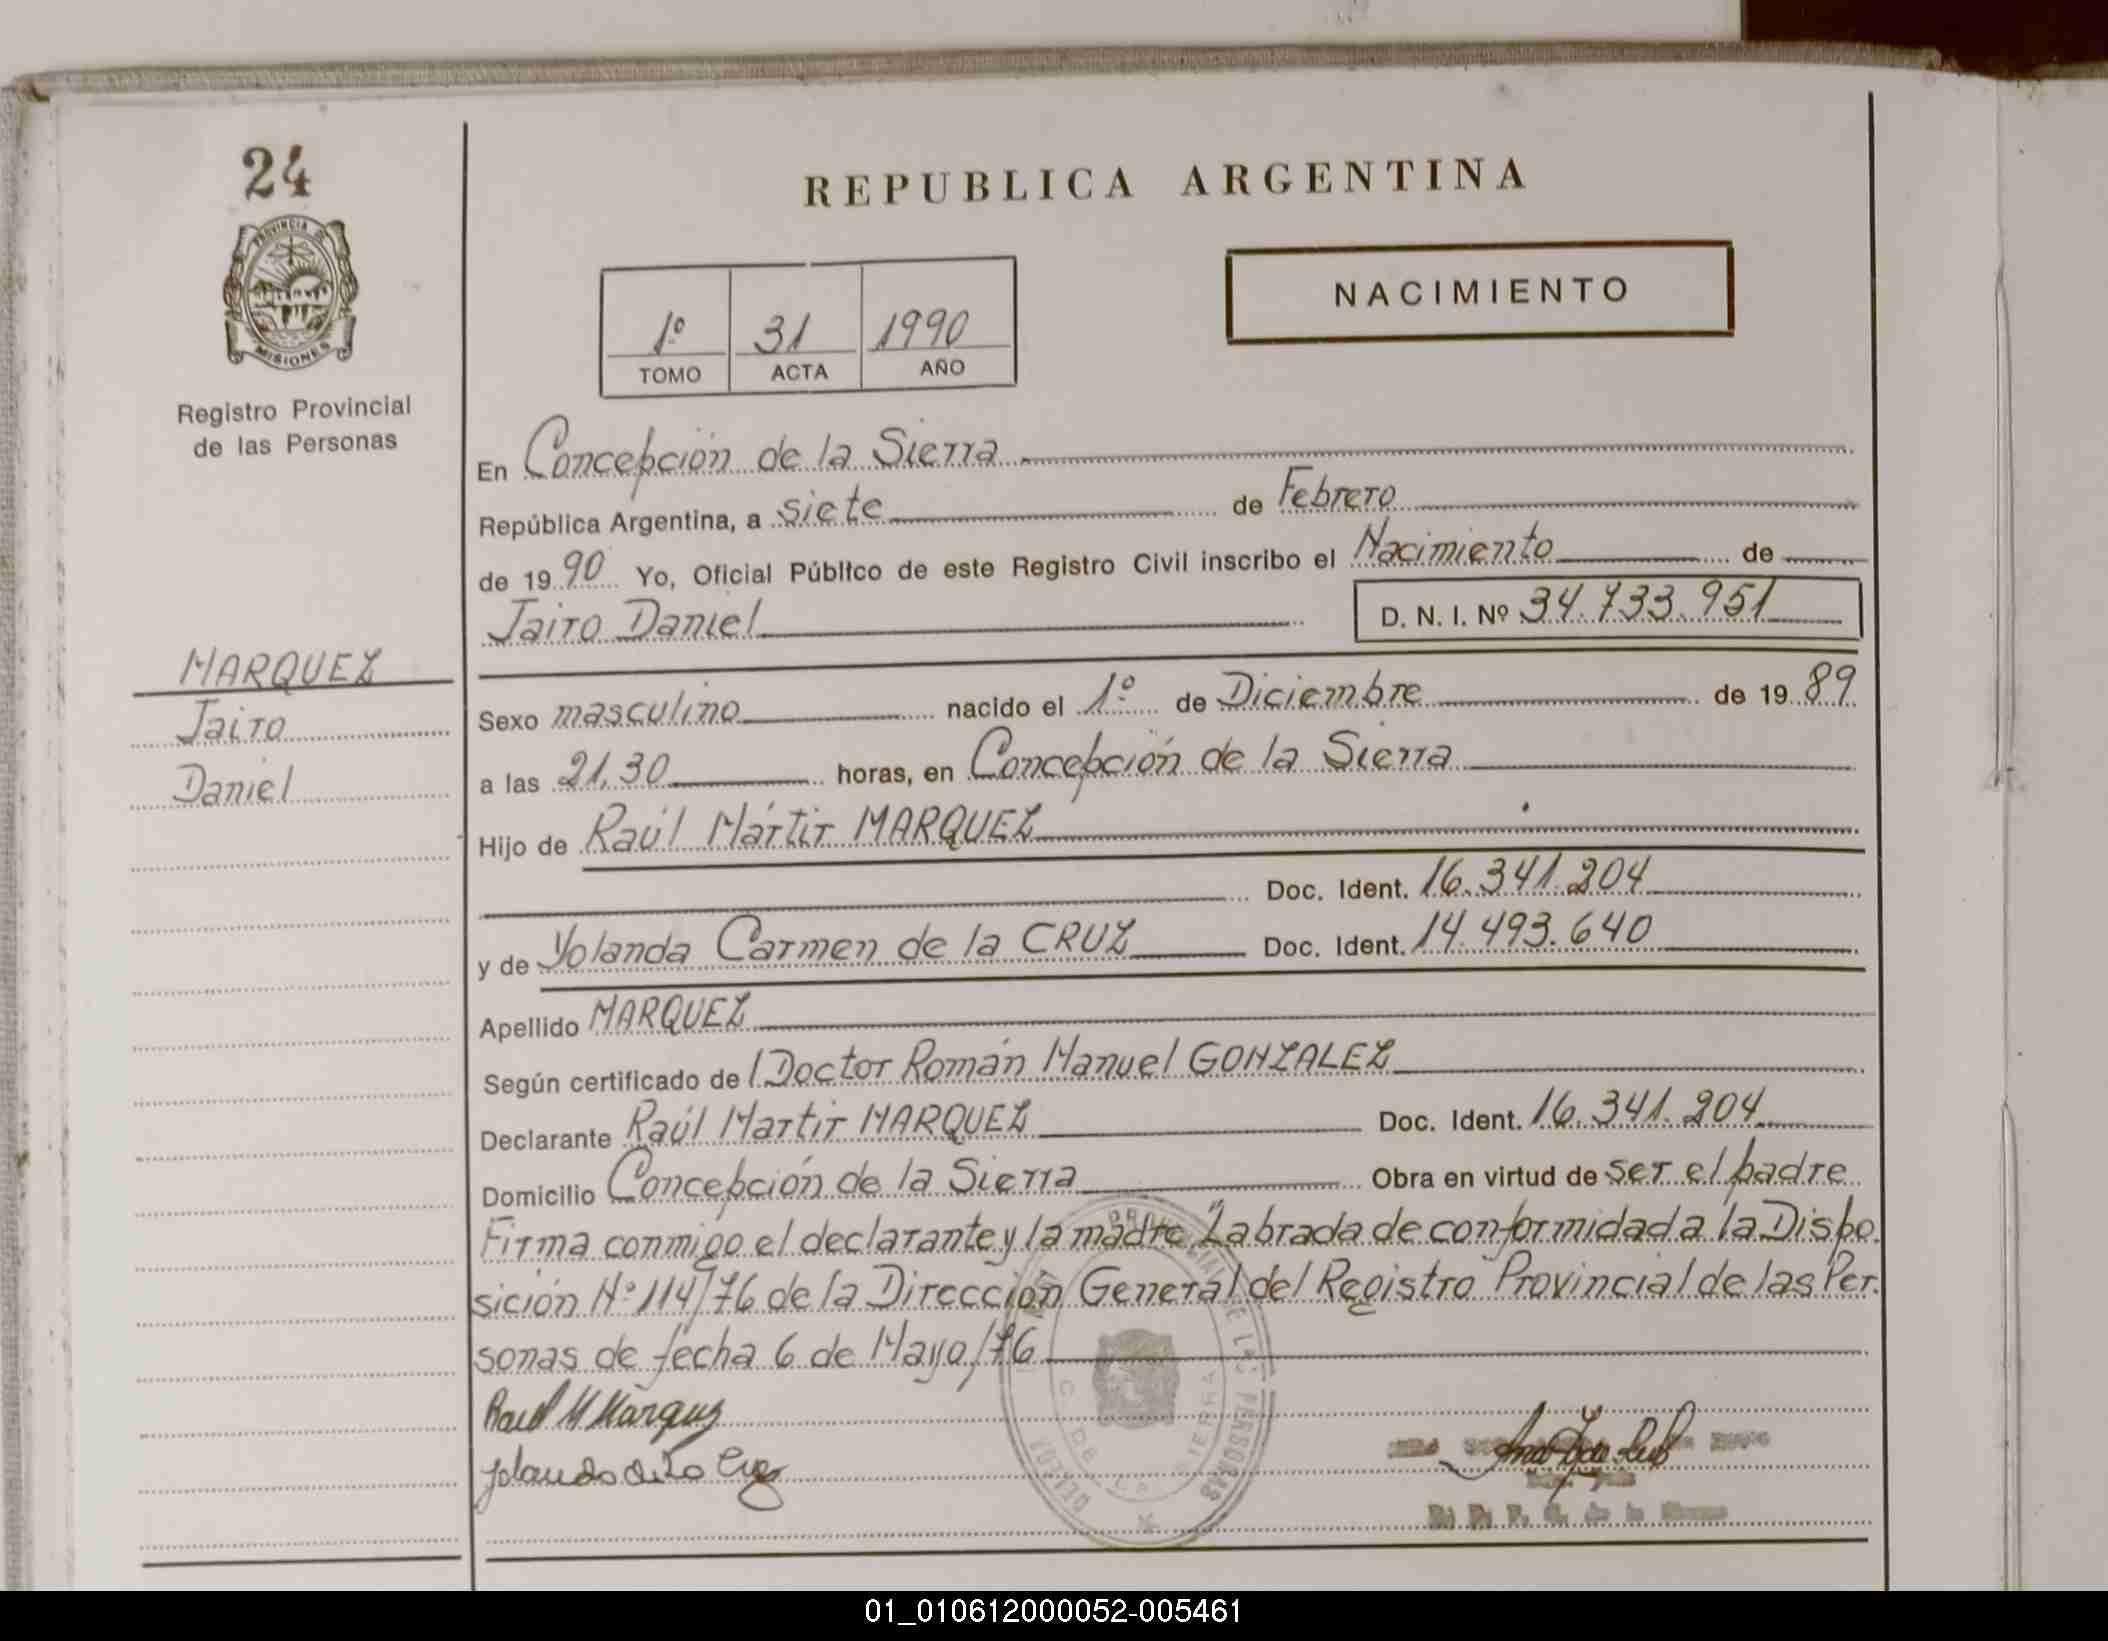 24
PROVINCIA DE
MISIONES
Registro Provincial
de las Personas
MARQUEZ
Jairo
Daniel
REPUBLICA ARGENTINA
1º 31 1990
TOMO ACTA AÑO
NACIMIENTO
En Concepción de la Sierra
República Argentina, a siete de Febrero
de 1990 Yo, Oficial Público de este Registro Civil inscribo el Nacimiento de
Jairo Daniel D. N. I. Nº 34.733.951
Sexo masculino nacido el 1º de Diciembre de 1989
a las 21,30 horas, en Concepción de la Sierra
Hijo de Raúl Mártir MARQUEZ
Doc. Ident. 16.341.204
y de Yolanda Carmen de la CRUZ Doc. Ident. 14.493.640
Apellido MARQUEZ
Según certificado del Doctor Román Manuel GONZALEZ
Declarante Raúl Martir MARQUEZ Doc. Ident. 16.341.204
Domicilio Concepción de la Sierra Obra en virtud de ser el padre
Firma conmigo el declarante y la madre "Labrada de conformidad a la Dispo.
sición Nº 114/76 de la Dirección General del Registro Provincial de las Per.
sonas de fecha 6 de Mayo/76
Raul M Marquez
Yolanda de la Cruz
PROVINCIAL DE LAS PERSONAS
C. DE LA SIERRA
01_010612000052-005461